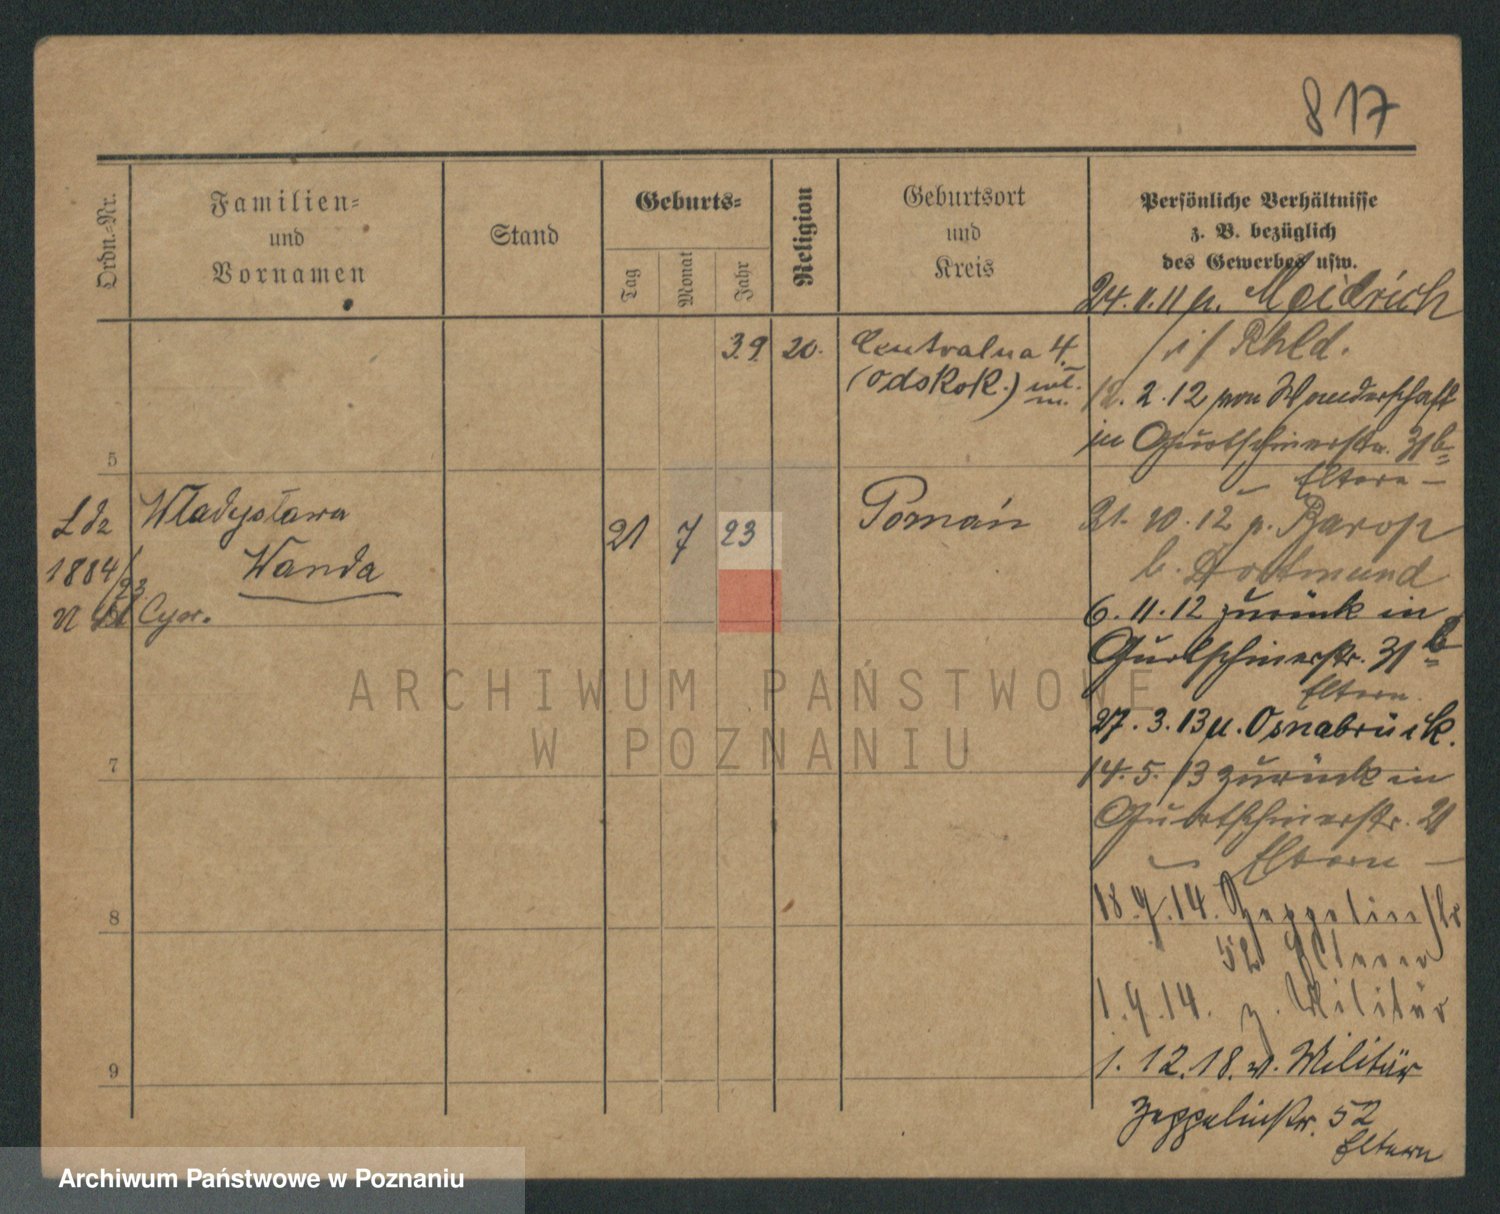 817
Ordn.-Nr.
Familien-
und
Vornamen
Stand
Geburts-
Tag
Monat
Jahr
Religion
Geburtsort
und
Kreis
Persönliche Verhältnisse
z. B. bezüglich
des Gewerbes usw.
24.11.11 n. Meidrich
i/ Rhld.
3.9. 20. Centralna 4.
(odskok.)
12.2.12 von Wanderschaft
in Gurtschinerstr. 31b
5
– Eltern –
Władysława
Wanda
Cyw.
1884/23
21 7 23
Poznań
21.10.12 n. Barop
b. Dortmund
6.11.12 zurück in
Gurtschinerstr. 31b
Eltern
27.3.13 n. Osnabrück.
7
14.5.13 zurück in
Gurtschinerstr. 21
– Eltern –
8
18.9.14. Zeppelinstr
52 Eltern
1.9.14. z. Militär
9
1.12.18. v. Militär
Zeppelinstr. 52
Eltern
ARCHIWUM PAŃSTWOWE
W POZNANIU
Archiwum Państwowe w Poznaniu